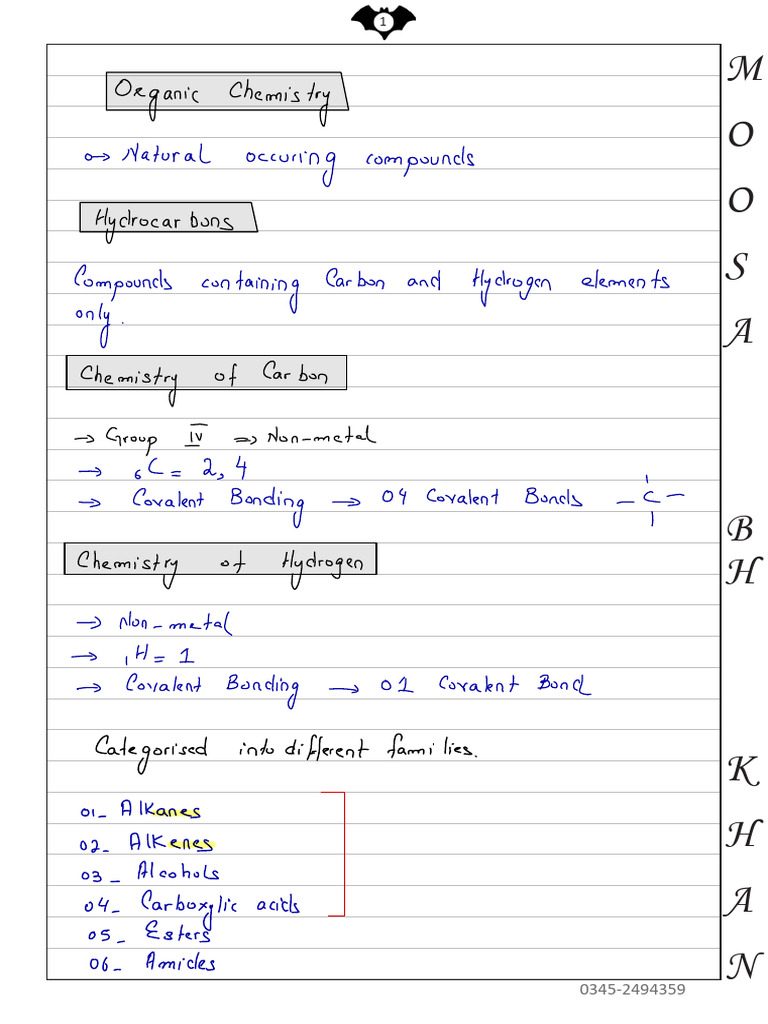 1
Organic Chemistry
o→ Natural occuring compounds
Hydrocarbons
Compounds containing Carbon and Hydrogen elements
only.
Chemistry of Carbon
→ Group IV ⇒ Non-metal
→ ₆C = 2, 4
→ Covalent Bonding → 04 Covalent Bonds – C –
Chemistry of Hydrogen
→ Non-metal
→ ₁H = 1
→ Covalent Bonding → 01 Covalent Bond
Categorised into different families.
01_ Alkanes
02_ Alkenes
03_ Alcohols
04_ Carboxylic acids
05_ Esters
06_ Amides
MOOSA BH KHAN
0345-2494359